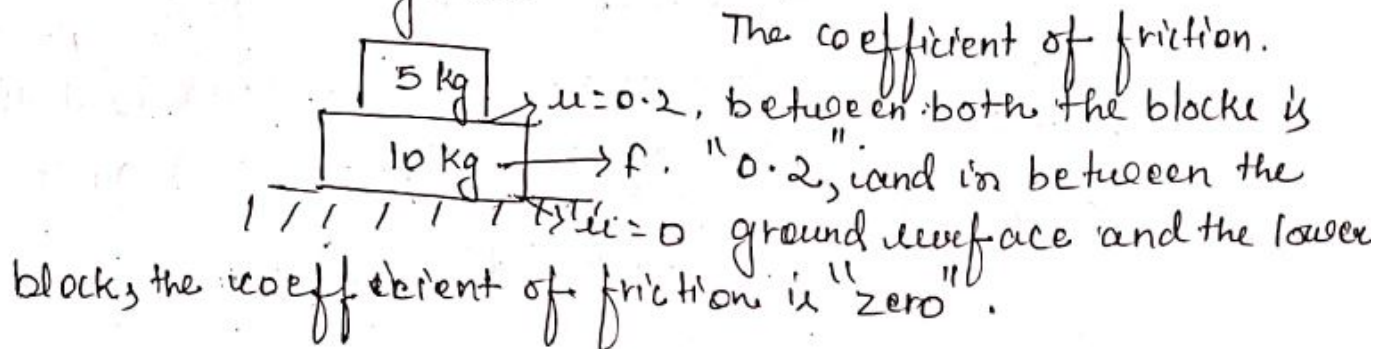 The coefficient of friction.
5 kg
μ=0.2, between both the blocks is
10 kg → f. "0.2", and in between the
μ=0 ground surface and the lower
block, the coefficient of friction is "zero".